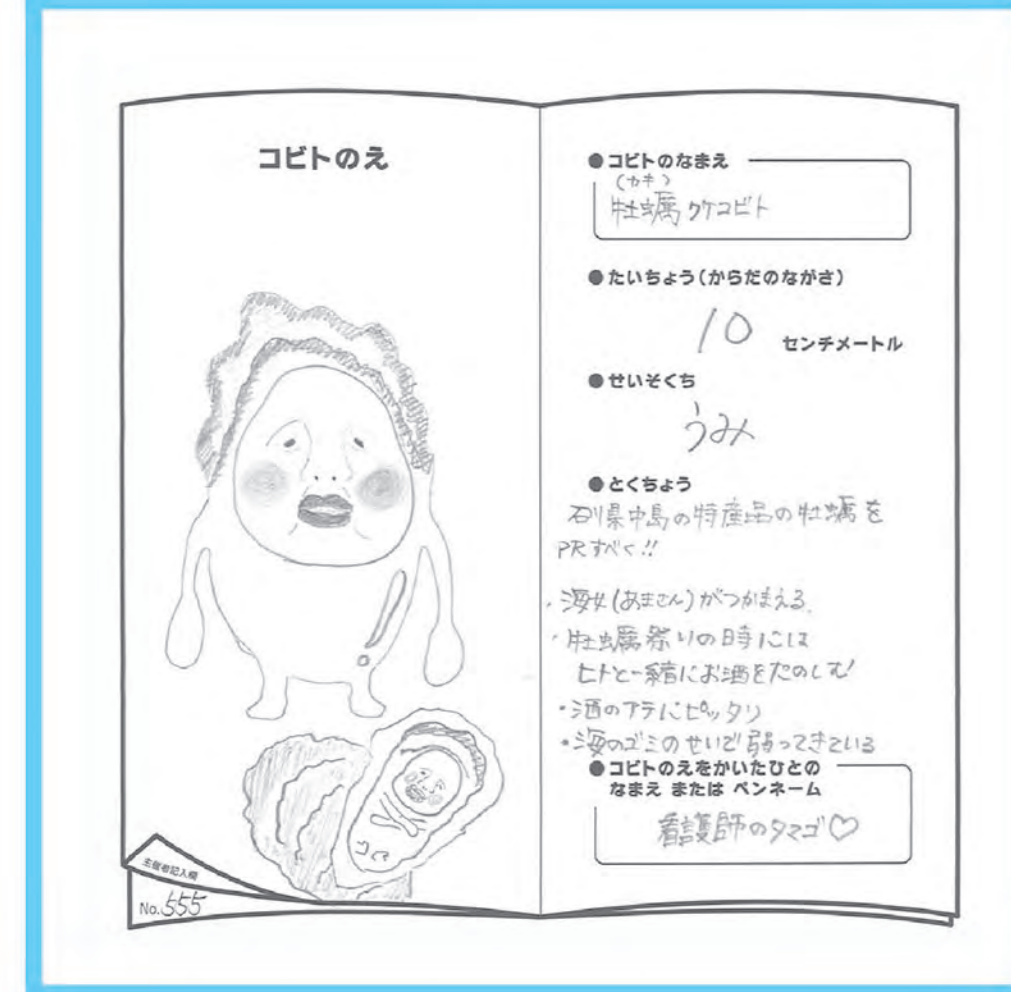 コビトのえ
主催者記入欄
No. 555
●コビトのなまえ
(カキ)
牡蠣クケコビト
●たいちょう(からだのながさ)
10 センチメートル
●せいそくち
うみ
●とくちょう
石川県中島の特産品の牡蠣を
PRすべく!!
・海女(あまさん)がつかまえる。
・牡蠣祭りの時には
ヒトと一緒にお酒をたのしむ!
・酒のアテにピッタリ
・海のゴミのせいで弱ってきている
●コビトのえをかいたひとの
なまえ または ペンネーム
看護師のタマゴ♡